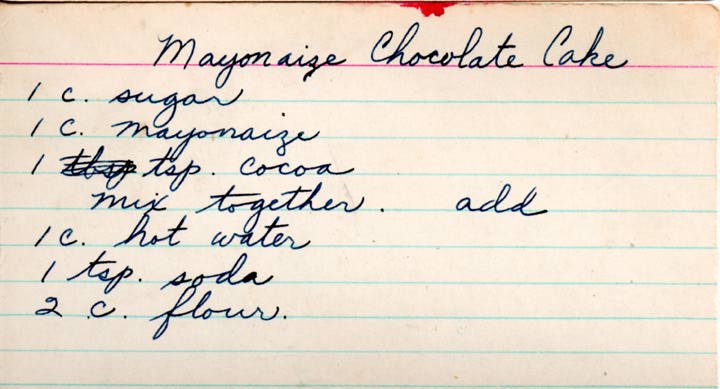 Mayonaize Chocolate Cake
1 c. sugar
1 c. mayonaize
1 tsp. cocoa
mix together. add
1 c. hot water
1 tsp. soda
2 c. flour.